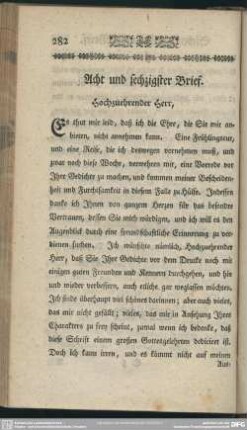 282
Acht und sechzigster Brief.
Hochzuehrender Herr,
Es thut mir leid, daß ich die Ehre, die Sie mir an-
bieten, nicht annehmen kann. Eine Frühlingscur,
und eine Reise, die ich deswegen vornehmen muß, und
zwar noch diese Woche, verwehren mir, eine Vorrede vor
Ihre Gedichte zu machen, und kommen meiner Bescheiden-
heit und Furchtsamkeit in diesem Falle zu Hülfe. Indessen
danke ich Ihnen von ganzem Herzen für das besondre
Vertrauen, dessen Sie mich würdigen, und ich will es den
Augenblick durch eine freundschaftliche Erinnerung zu ver-
dienen suchen. Ich wünschte nämlich, Hochzuehrender
Herr, daß Sie Ihre Gedichte vor dem Drucke noch mit
einigen guten Freunden und Kennern durchgehen, und hin
und wieder verbessern, auch etliche gar weglassen möchten.
Ich finde überhaupt viel schönes darinnen; aber auch vieles,
das mir nicht gefällt; vieles, das mir in Ansehung Ihres
Charakters zu frey scheint, zumal wenn ich bedenke, daß
diese Schrift einem großen Gottesgelehrten dediciret ist.
Doch ich kann irren, und es kömmt nicht auf meinen
Aus-